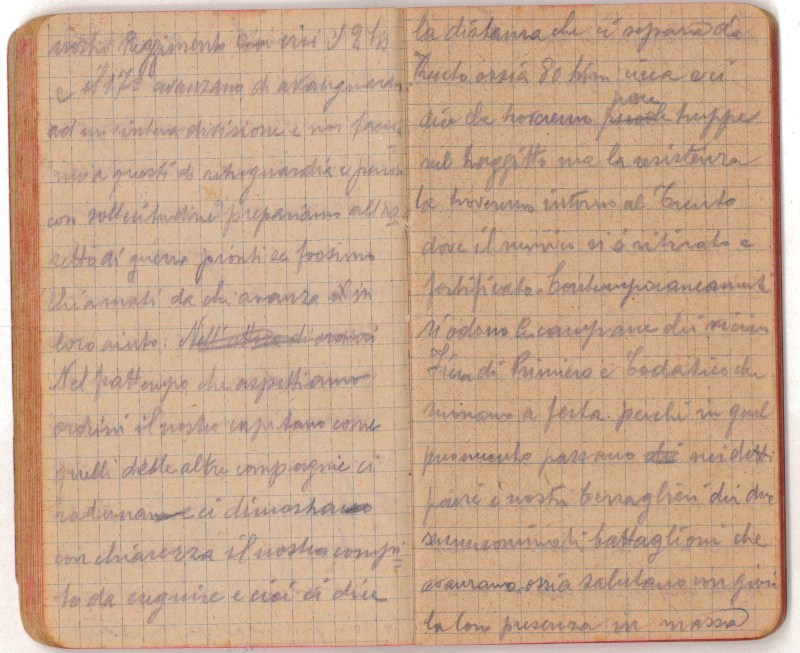 nostro Reggimento cioè il 1° 218
e il 172° avanzano di avanguardia
ad un'intera divisione e noi faccia-
mo a questi di retroguardia e perciò
con sollecitudine prepariamo all'as
setto di guerra pronti se fossimo
chiamati da chi avanza in
loro aiuto. Nell'attesa di ordini
Nel frattempo che aspettiamo
ordini il nostro capitano come
quelli delle altre compagnie ci
radunano e ci dimostrano
con chiarezza il nostro compi
to da eseguire e cioè ci dice
la distanza che ci separa da
Trento ossia 80 Km circa e ci
dice che troveremo poche truppe
sul tragitto ma la resistenza
la troveremo intorno al Trento
dove il nemico si è ritirato e
fortificato. Contemporaneamente
s'odono le campane dei vicini
Fiera di Primiero e che
suonano a festa perché in quel
momento passano nei detti
paesi i nostri bersaglieri dei due
summenominati battaglioni che
avanzano, ossia salutano con gioia
la loro presenza in massa